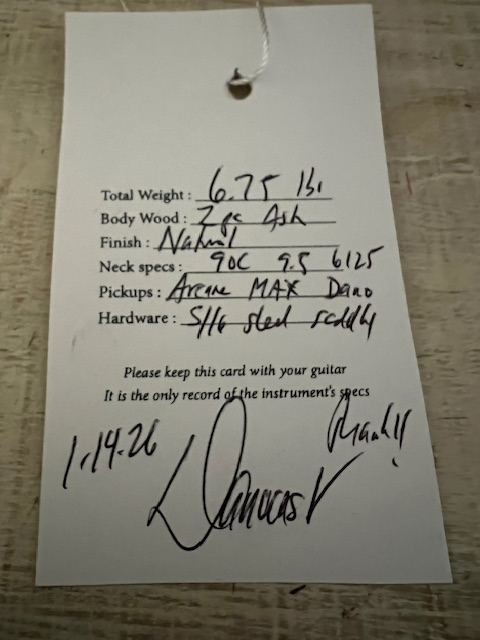 Total Weight : 6.75 lbs
Body Wood : 2 pc Ash
Finish : Natural
Neck specs : 90C 9.5 6125
Pickups : MAX Dano
Hardware : 5/16 steel saddles
Please keep this card with your guitar
It is the only record of the instrument's specs
Thank!!
1.14.26